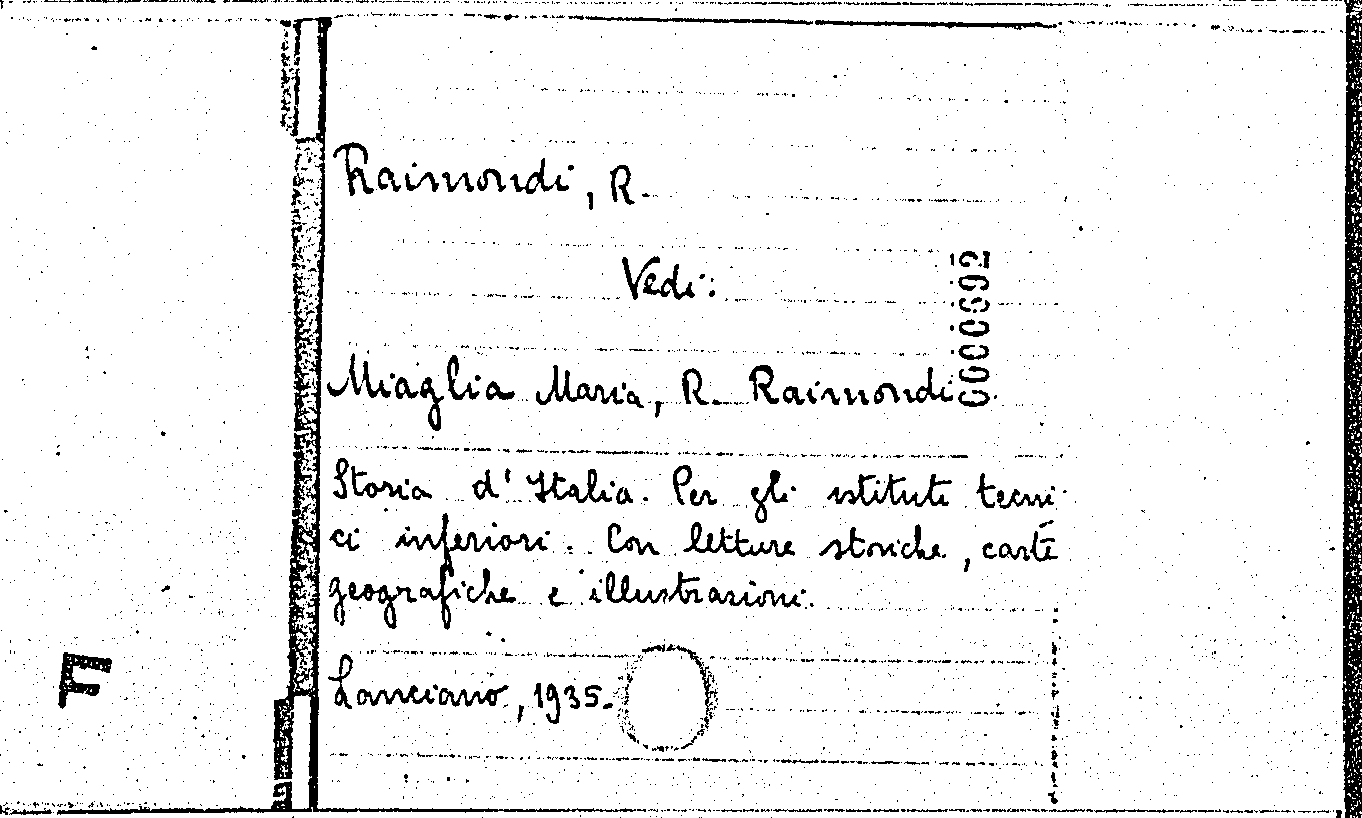 Raimondi, R.
Vedi:
0000692
Miaglia Maria, R. Raimondi
Storia d'Italia. Per gli istituti tecni
ci inferiori. Con letture storiche, carte
geografiche e illustrazioni.
F
Lanciano, 1935.